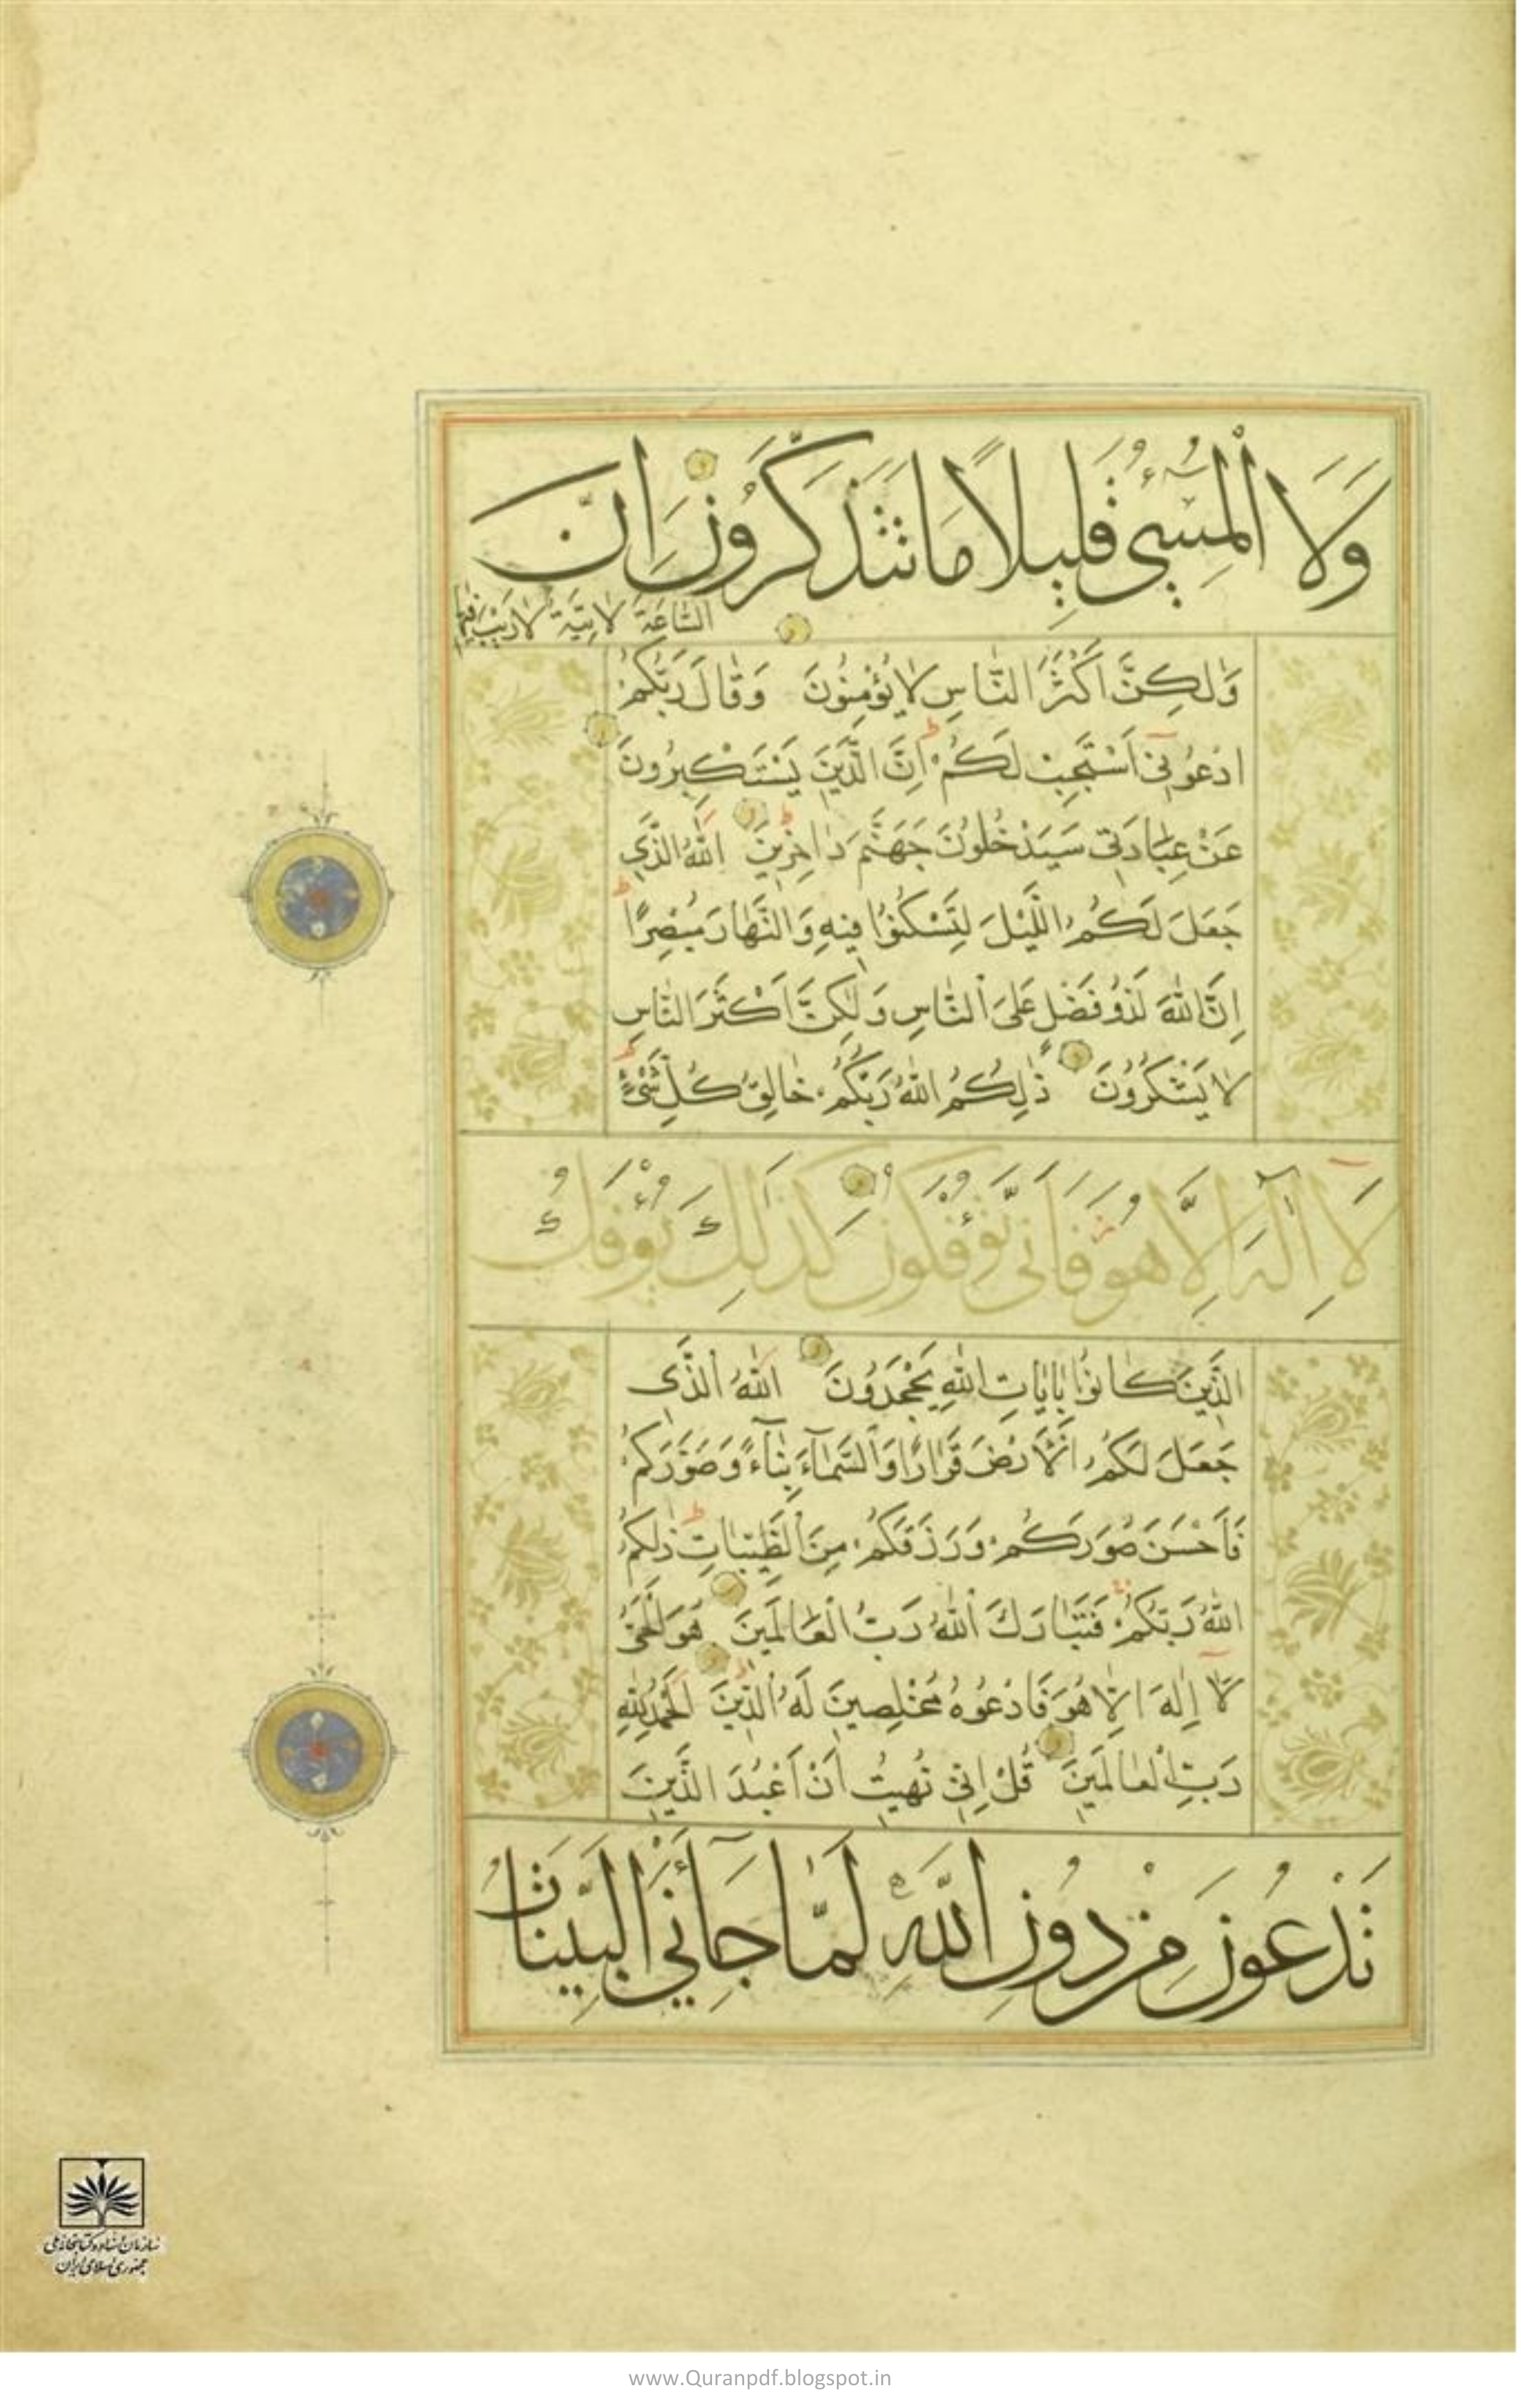 وَلَا الْمُسِيءُ قَلِيلًا مَا تَتَذَكَّرُونَ اِنَّ
السَّاعَةَ لَاٰتِيَةٌ لَارَيْبَ فِيهَا
وَلٰكِنَّ اَكْثَرَ النَّاسِ لَا يُؤْمِنُونَ وَقَالَ رَبُّكُمُ
ادْعُونِي اَسْتَجِبْ لَكُمْ اِنَّ الَّذِينَ يَسْتَكْبِرُونَ
عَنْ عِبَادَتِي سَيَدْخُلُونَ جَهَنَّمَ دَاخِرِينَ اللّٰهُ الَّذِي
جَعَلَ لَكُمُ اللَّيْلَ لِتَسْكُنُوا فِيهِ وَالنَّهَارَ مُبْصِرًا
اِنَّ اللّٰهَ لَذُو فَضْلٍ عَلَى النَّاسِ وَلٰكِنَّ اَكْثَرَ النَّاسِ
لَا يَشْكُرُونَ ذٰلِكُمُ اللّٰهُ رَبُّكُمْ خَالِقُ كُلِّ شَيْءٍ
لَا اِلٰهَ اِلَّا هُوَ فَاَنّٰى تُؤْفَكُونَ كَذٰلِكَ يُؤْفَكُ
الَّذِينَ كَانُوا بِاٰيَاتِ اللّٰهِ يَجْحَدُونَ اللّٰهُ الَّذِي
جَعَلَ لَكُمُ الْاَرْضَ قَرَارًا وَالسَّمَآءَ بِنَآءً وَصَوَّرَكُمْ
فَاَحْسَنَ صُوَرَكُمْ وَرَزَقَكُمْ مِنَ الطَّيِّبَاتِ ذٰلِكُمُ
اللّٰهُ رَبُّكُمْ فَتَبَارَكَ اللّٰهُ رَبُّ الْعَالَمِينَ هُوَ الْحَيُّ
لَا اِلٰهَ اِلَّا هُوَ فَادْعُوهُ مُخْلِصِينَ لَهُ الدِّينَ الْحَمْدُ لِلّٰهِ
رَبِّ الْعَالَمِينَ قُلْ اِنِّي نُهِيتُ اَنْ اَعْبُدَ الَّذِينَ
تَدْعُونَ مِنْ دُونِ اللّٰهِ لَمَّا جَآءَنِيَ الْبَيِّنَاتُ
سازمان اسناد و کتابخانه ملی
جمهوری اسلامی ایران
www.Quranpdf.blogspot.in